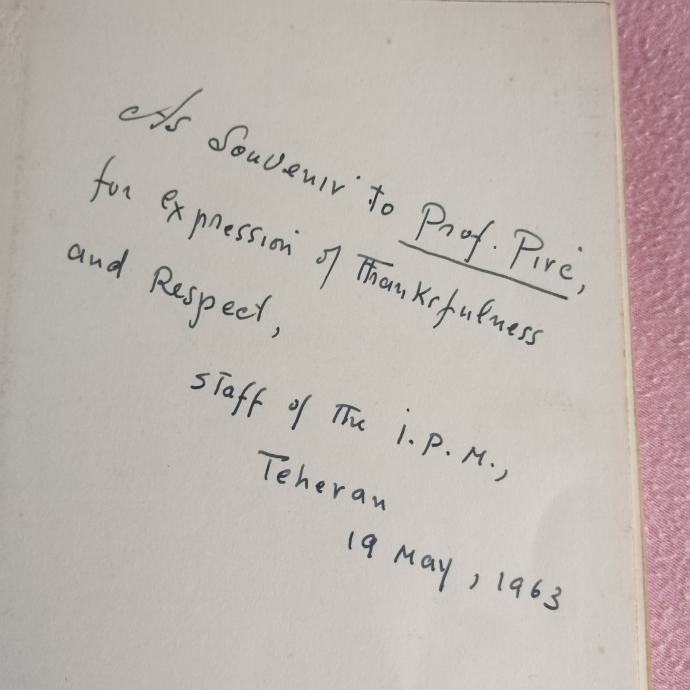 As Souvenir to Prof. Piré,
for expression of Thanksfulness
and Respect,
staff of The i.P.M.,
Teheran
19 May, 1963